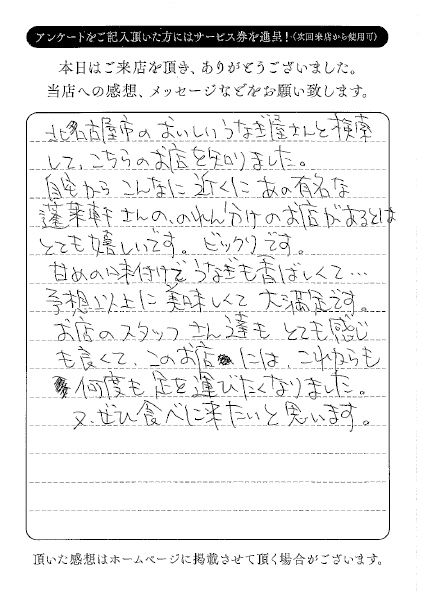 アンケートをご記入頂いた方にはサービス券を進呈！（次回来店から使用可）
本日はご来店を頂き、ありがとうございました。
当店への感想、メッセージなどをお願い致します。
北名古屋市のおいしいうなぎ屋さんと検索
して、こちらのお店を知りました。
自宅からこんなに近くにあの有名な
蓬莱軒さんの、のれん分けのお店があるとは
とても嬉しいです。ビックリです。
甘めの味付けでうなぎも香ばしくて…
予想以上に美味しくて大満足です。
お店のスタッフさん達もとても感じ
も良くて、このお店には、これからも
何度も足を運びたくなりました。
又、ぜひ食べに来たいと思います。
頂いた感想はホームページに掲載させて頂く場合がございます。